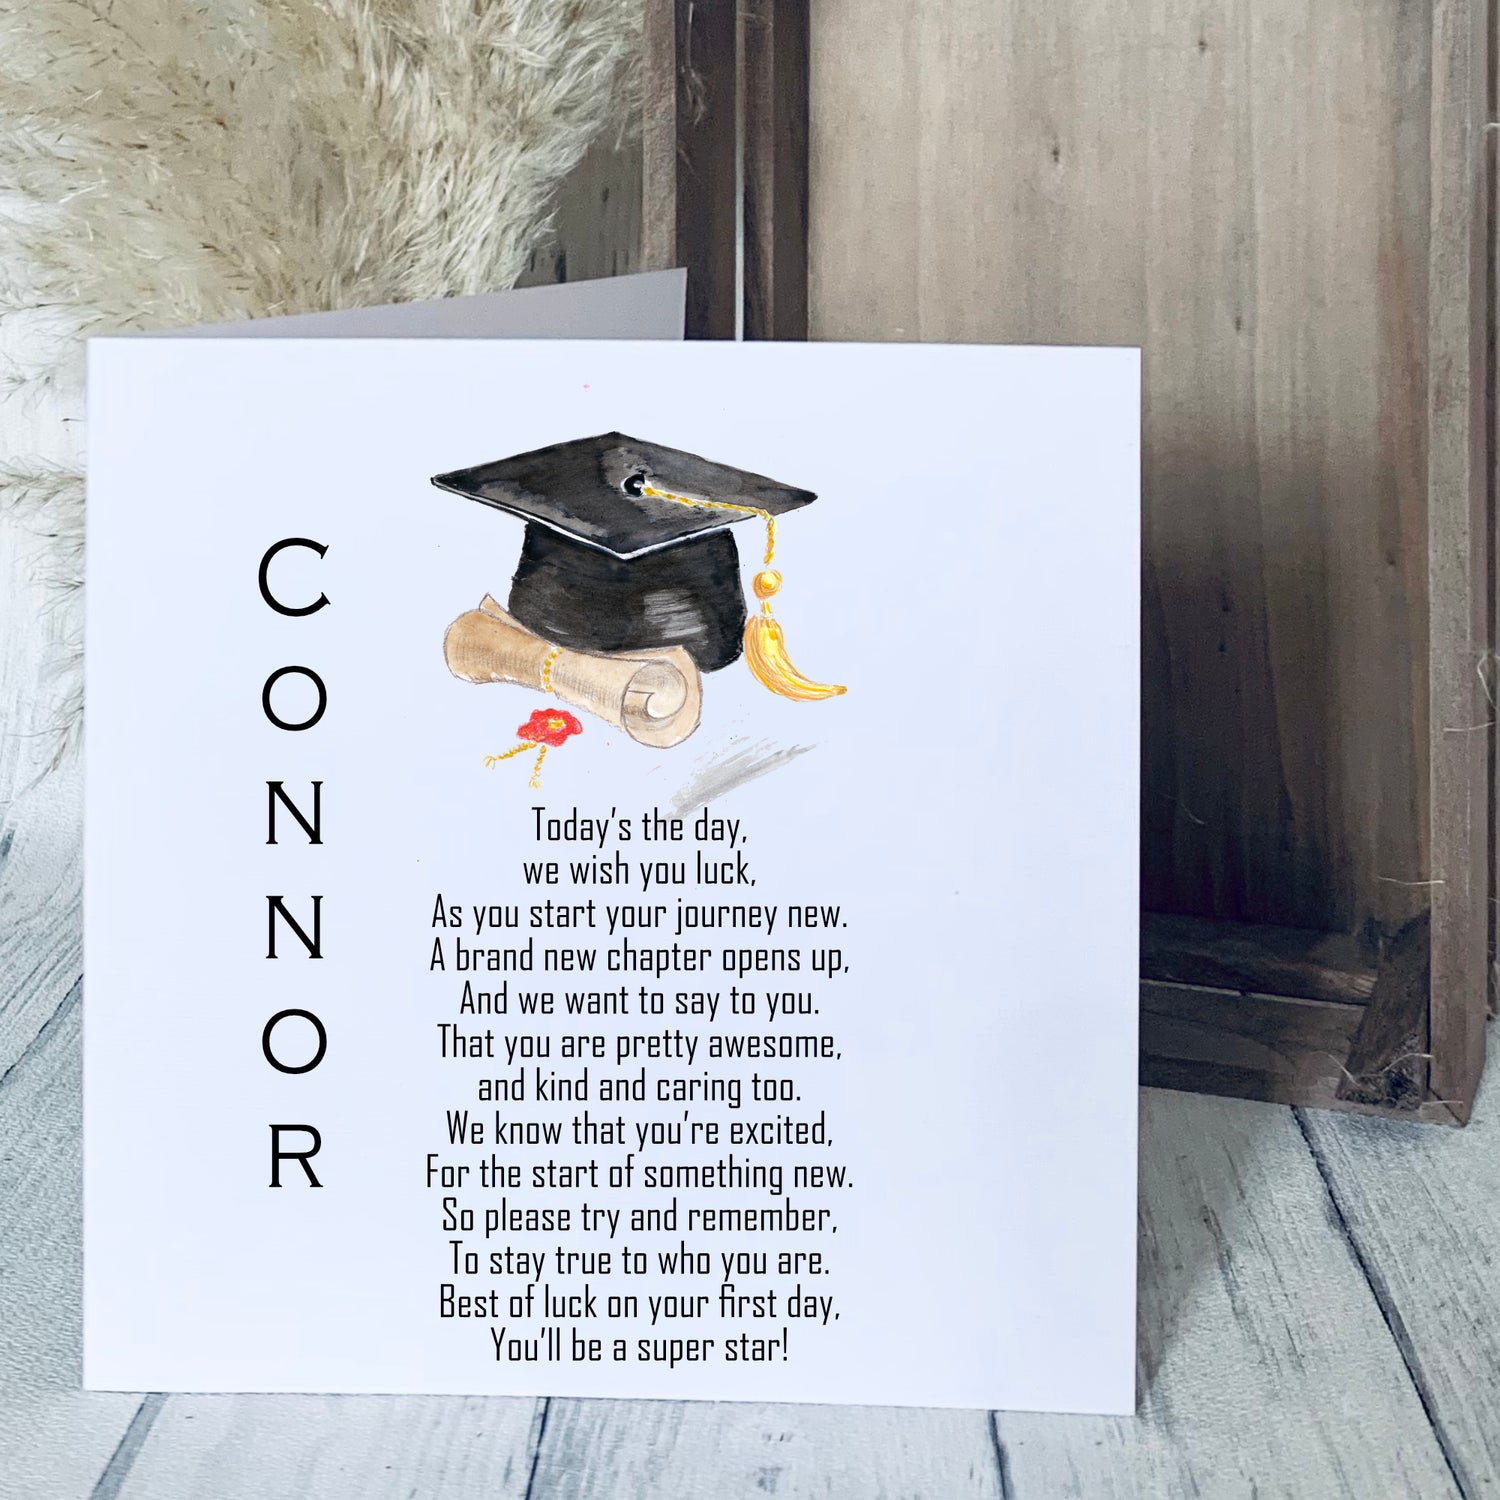 CONNOR
Today's the day,
we wish you luck,
As you start your journey new.
A brand new chapter opens up,
And we want to say to you.
That you are pretty awesome,
and kind and caring too.
We know that you're excited,
For the start of something new.
So please try and remember,
To stay true to who you are.
Best of luck on your first day,
You'll be a super star!